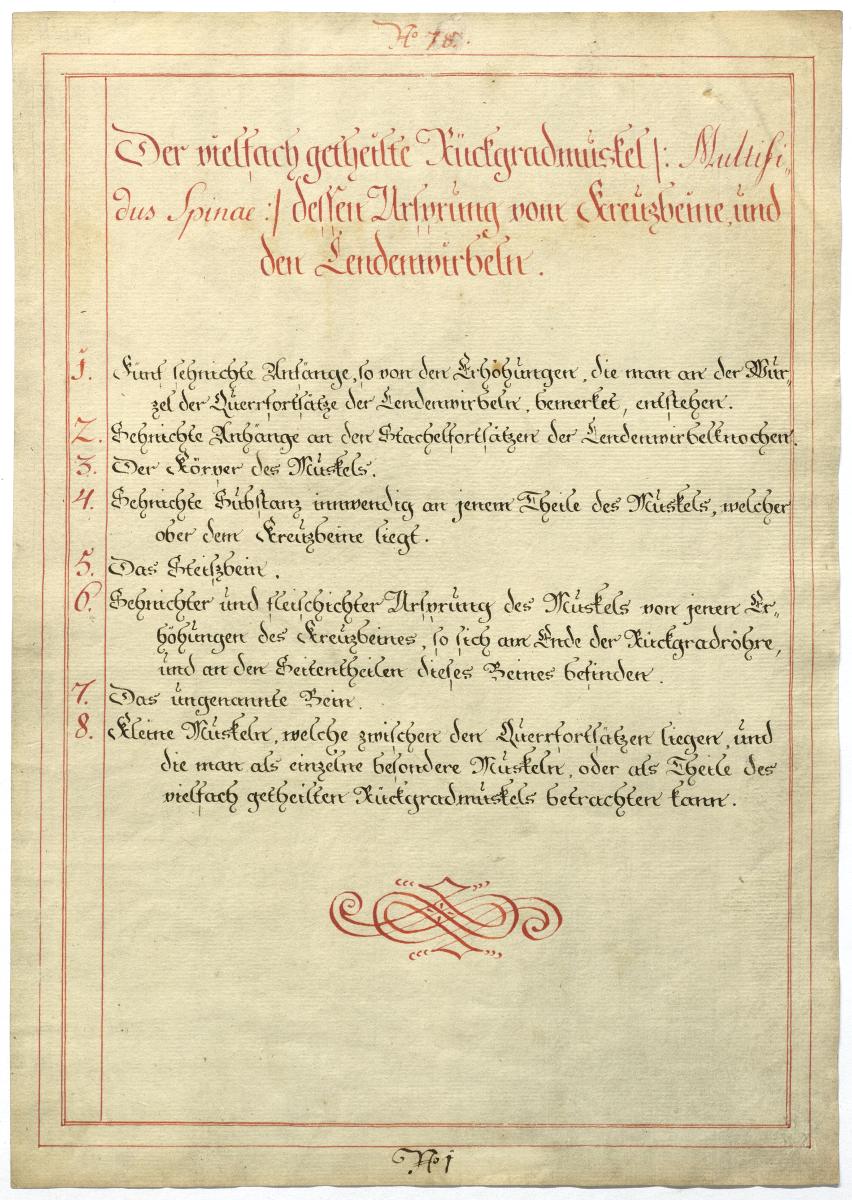 No 78.
Der vielfach getheilte Rückgradmuskel /: Multifi-
dus Spinae :/ dessen Ursprung vom Kreuzbeine, und
den Lendenwirbeln.
1. Fünf sehnichte Anfänge, so von den Erhöhungen, die man an der Wur-
zel der Querrfortsätze der Lendenwirbeln, bemerket, entstehen.
2. Sehnichte Anhänge an den Stachelfortsätzen der Lendenwirbelknochen.
3. Der Körper des Muskels.
4. Sehnichte Substanz innwendig an jenem Theile des Muskels, welcher
ober dem Kreuzbeine liegt.
5. Das Steißbein.
6. Sehnichter und fleischichter Ursprung des Muskels von jenen Er-
höhungen des Kreuzbeines, so sich am Ende der Rückgradröhre,
und an den Seitentheilen dieses Beines befinden.
7. Das ungenannte Bein.
8. Kleine Muskeln, welche zwischen den Querrfortsätzen liegen, und
die man als einzelne besondere Muskeln, oder als Theile des
vielfach getheilten Rückgradmuskels betrachten kann.
No 1